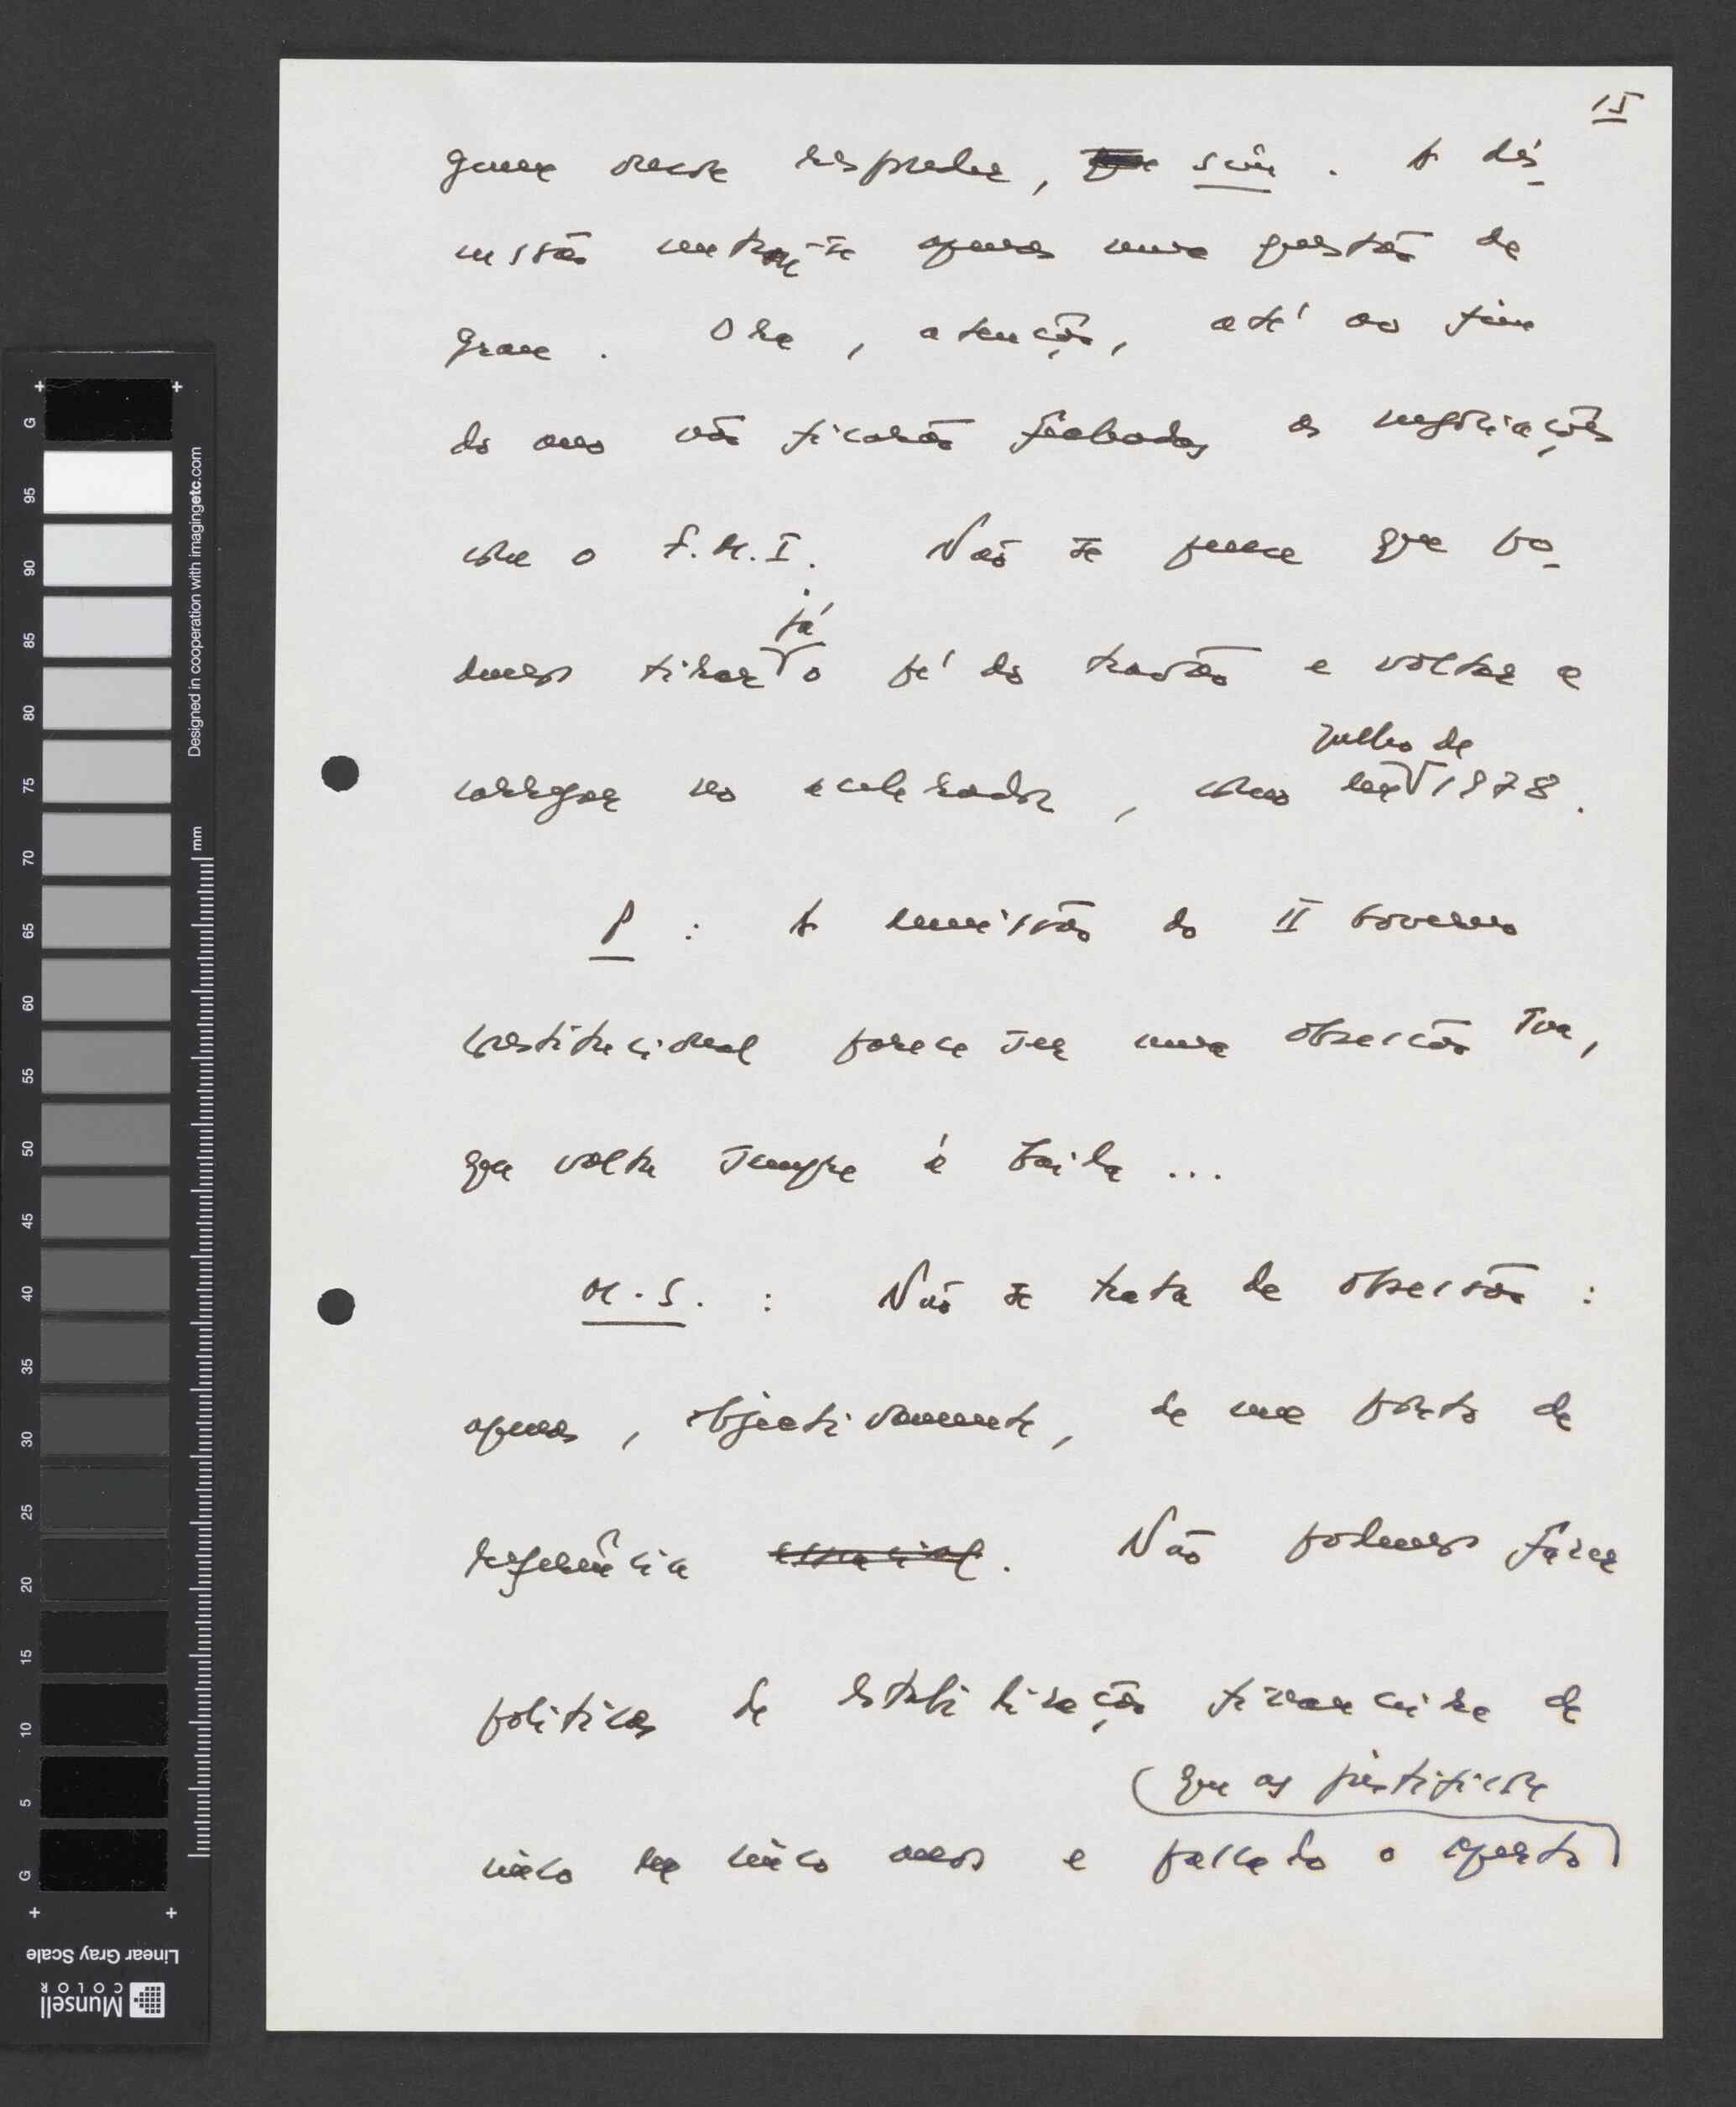 15
quem ouse responder, que sim. A dis-
cussão centra-se apenas numa questão de
grau. Ora, atenção, até ao fim
do ano não ficarão fechadas as negociações
com o F.M.I. Não se pense que po-
demos tirar já o pé do travão e voltar a
carregar no acelerador, como em Julho de 1978.
P: A demissão do II Governo
Constitucional parece ser uma obsecão tua,
que volta sempre à baila ...
M.S.: Não se trata de obsecsão:
apenas, objectivamente, de um ponto de
referência essencial. Não podemos fazer
políticas de estabilização financeira de
cinco em cinco anos e passado o aperto
que as justificou
Designed in cooperation with imagingetc.com
mm
G
95
90
85
80
75
70
65
60
55
50
45
40
35
30
25
20
15
10
5
G
Linear Gray Scale
Munsell
COLOR